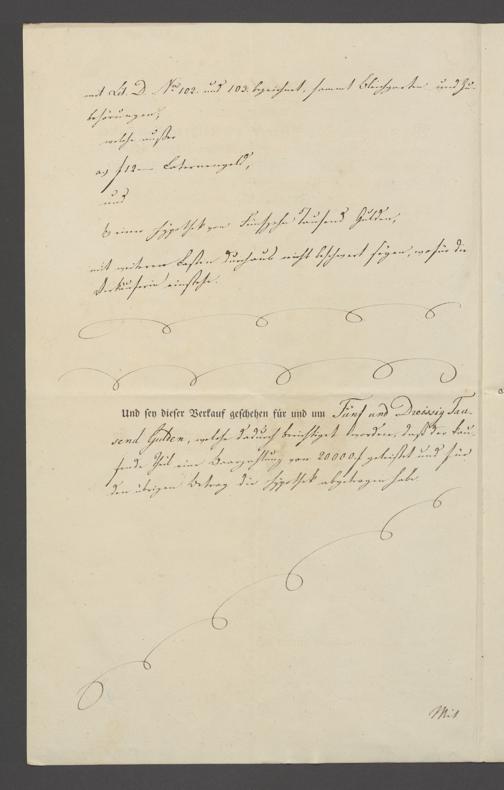 mit Lit. D. No 102. und 103. bezeichnet, sammt Bleichgarten und Zu-
behörungen,
welche außer
a, f 12 Laternengeld,
und
b, einer Hypothek von Fünfzehn Tausend Gulden,
mit weiteren Lasten durchaus nicht beschwert seyen, wofür die
Verkäuferin einstehe.
Und sey dieser Verkauf geschehen für und um Fünf und Dreissig Tau-
send Gulden, welche dadurch berichtiget werden, daß der kau-
fende Theil eine Baarzahlung von 20000 f geleistet und für
den übrigen Betrag die Hypothek abgetragen habe.
Mit